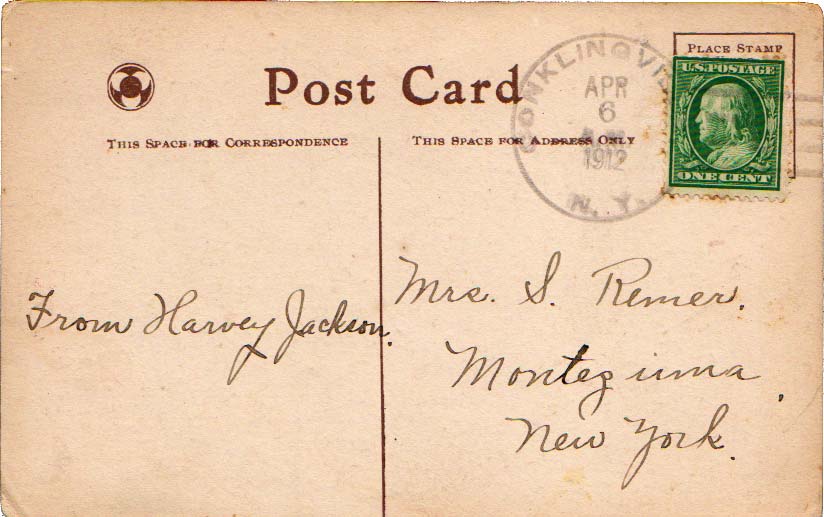 Post Card
THIS SPACE FOR CORRESPONDENCE
THIS SPACE FOR ADDRESS ONLY
PLACE STAMP
U.S. POSTAGE
ONE CENT
CONKLINGVIL
APR
6
1912
N. Y.
From Harvey Jackson.
Mrs. S. Remer.
Montezuma,
New York.